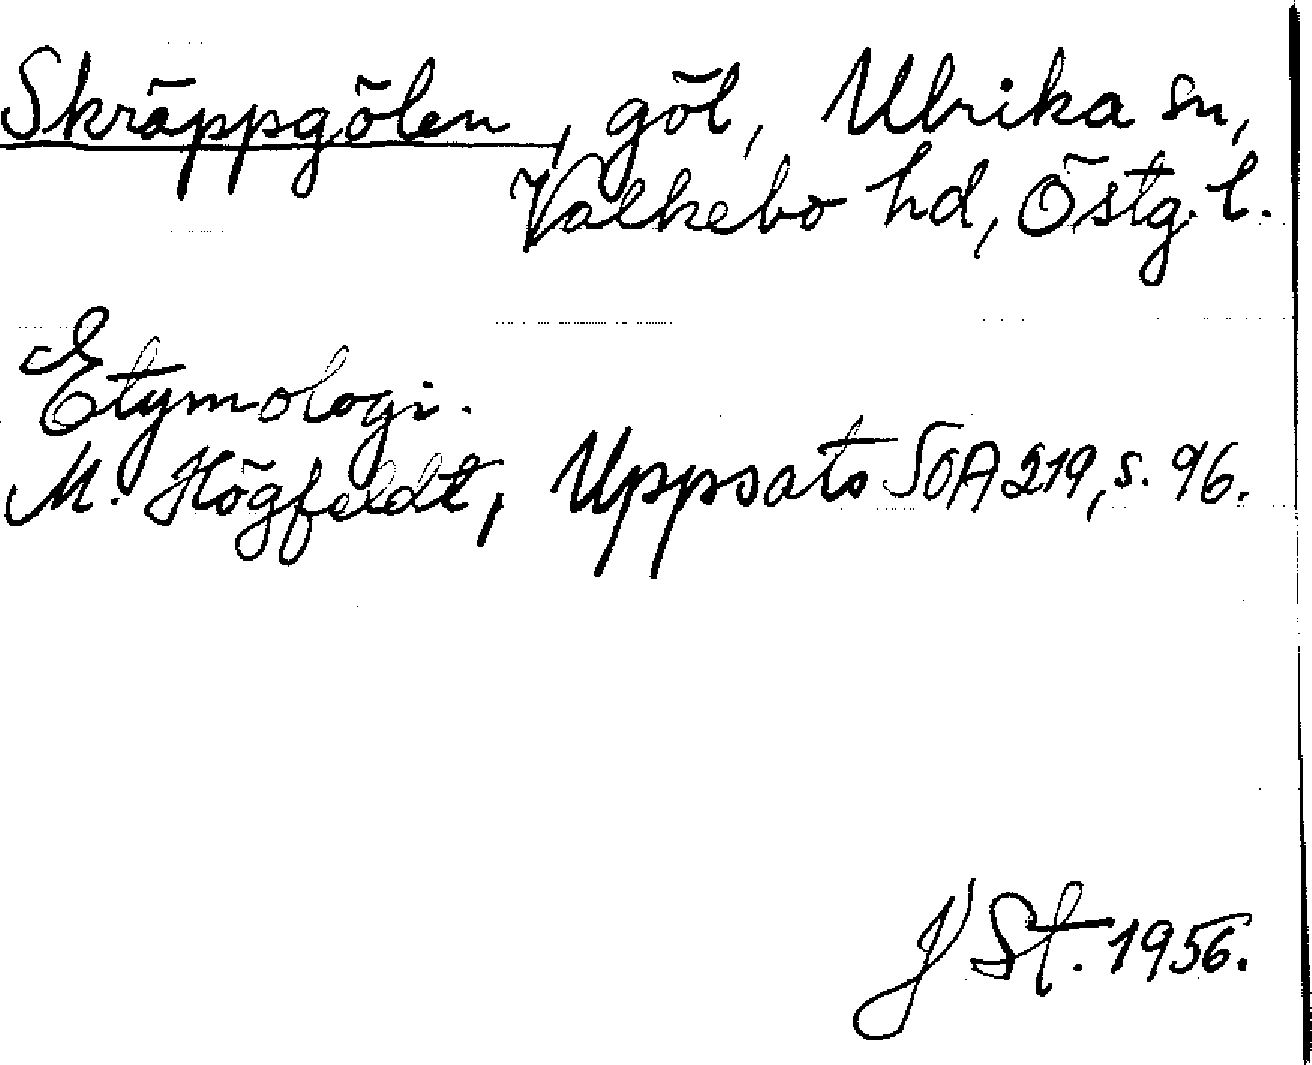 Skräppgölen, göl, Ulrika sn,
Valkebo hd, Östg. l.
Etymologi.
M. Högfeldt, Uppsats SOA 219, s. 96.
J St. 1956.